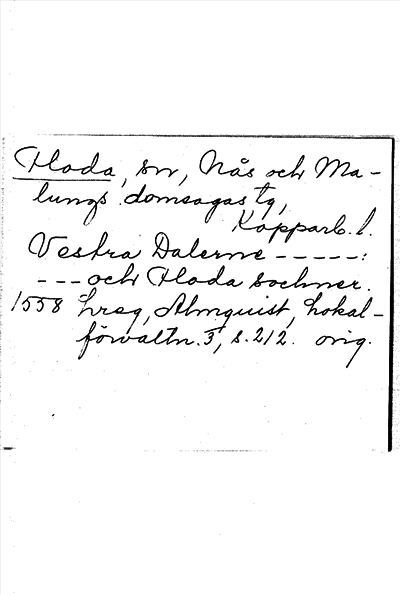 Floda, sn, Nås och Ma-
lungs domsagas tg,
Kopparb. l.
Vestra Dalerne - - - - - :
- - - och Floda sochner.
1558 hreg, Almquist, Lokal-
förvaltn. 3, s. 212. orig.